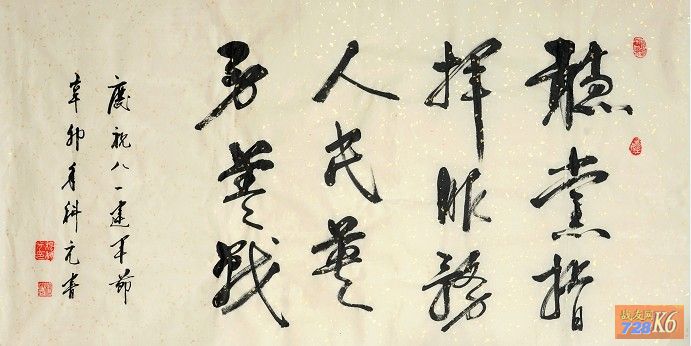 聽黨指
揮服務
人民英
勇善戰
慶祝八一建軍節
辛卯年科元書
战友网
728K6